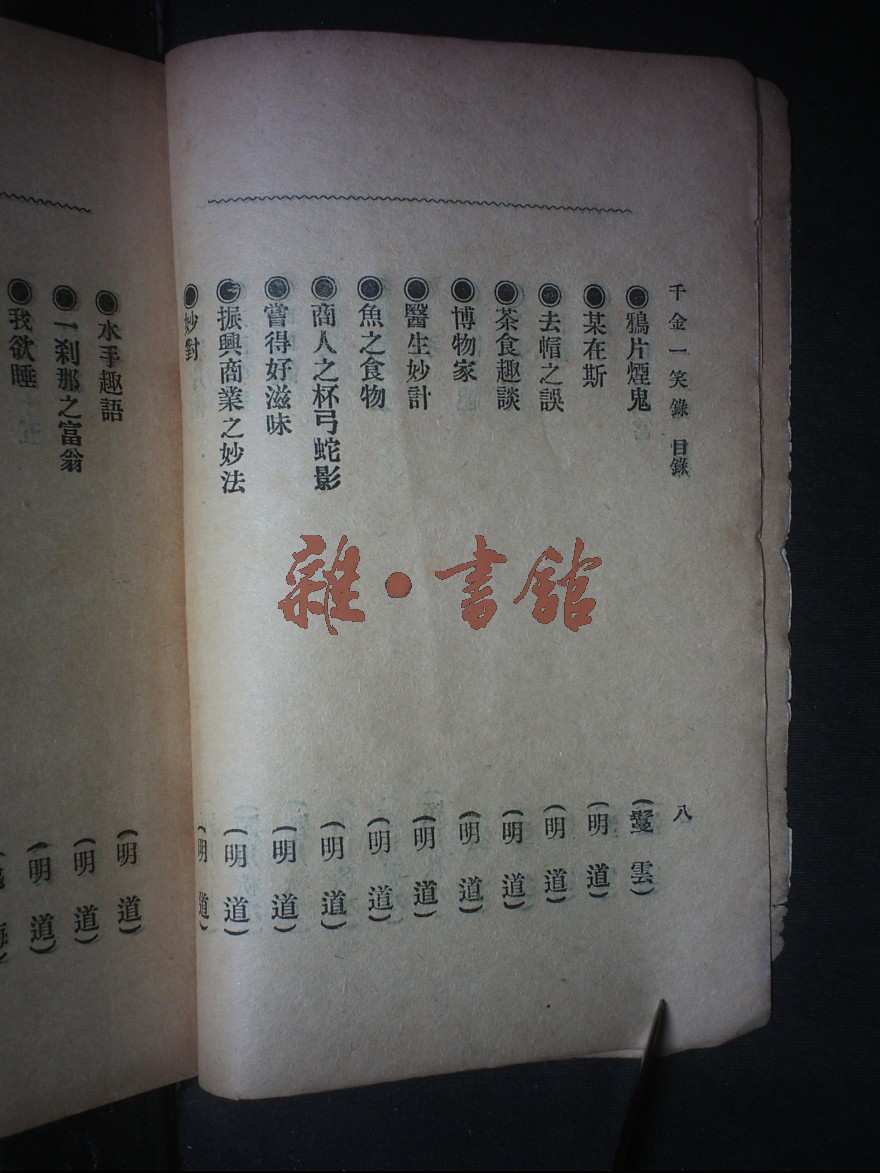 千金一笑錄 目錄 八
◉鴉片煙鬼 (雲)
◉某在斯 (明道)
◉去帽之誤 (明道)
◉茶食趣談 (明道)
◉博物家 (明道)
◉醫生妙計 (明道)
◉魚之食物 (明道)
◉商人之杯弓蛇影 (明道)
◉嘗得好滋味 (明道)
◉振興商業之妙法 (明道)
◉妙對 (明道)
◉水手趣語 (明道)
◉一剎那之富翁 (明道)
◉我欲睡 (明道)
雜•書館